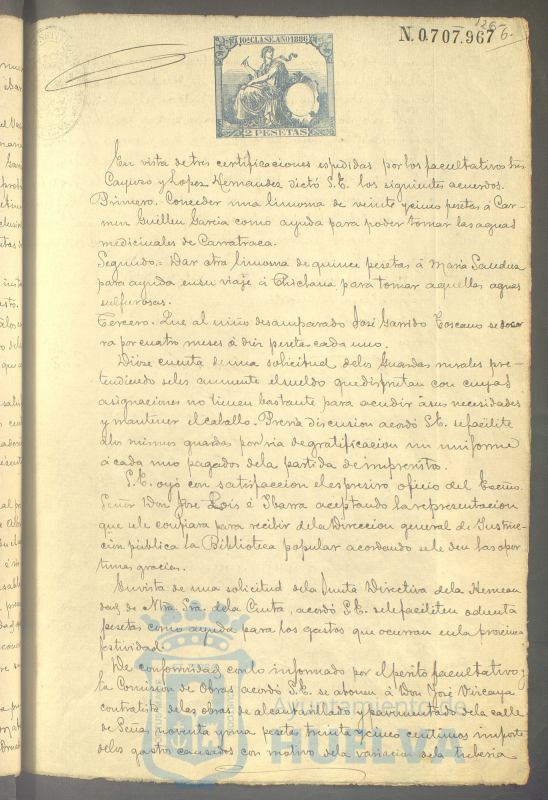 126
6.
N. 0.707.967
10ª CLASE. AÑO 1886
2 PESETAS
En vista de tres certificaciones espedidas por los facultativos Srs
Cayuso y Lopez Hernandez dictó S.E. los siguientes acuerdos.
Primero. Conceder una limosna de veinte y cinco pesetas á Car-
men Guillen Garcia como ayuda para poder tomar las aguas
medicinales de Carratraca.
Segundo.- Dar otra limosna de quince pesetas á Maria
para ayuda en su viaje á Chiclana para tomar aquellas aguas
sulfurosas.
Tercero. Que al niño desamparado José Garrido Toscano se
ra por cuatro meses á diez pesetas cada uno.
Dióse cuenta de una solicitud de los Guardas rurales pre-
tendiendo se les aumente el sueldo que disfrutan con cuyas
asignaciones no tienen bastante para acudir á sus necesidades
y mantener el caballo. Previa discusion acordó S.E. se facilite
á los mismos guardas por via de gratificacion un uniforme
á cada uno pagados de la partida de imprevisto.
S.E. oyó con satisfaccion el espresivo oficio del Excmo.
Señor Don José Lois é Ibarra aceptando la representacion
que se le confiara para recibir de la Direccion general de Instruc-
cion pública la Biblioteca popular acordando se le den las opor
tunas gracias.
En vista de una solicitud de la Junta Directiva de la Herman
dad de Ntra. Sra. de la Cinta, acordó S.E. se le faciliten ochenta
pesetas como ayuda para los gastos que ocurran en la procsima
festividad.
De conformidad con lo informado por el perito facultativo y
la Comision de Obras acordó S.E. se abonen á Don José Vizcaya
contratista de las obras de alcantarillado y pavimentado de la calle
de Peñas noventa y una pesetas treinta y cinco centimos importe
de los gastos causados con motivo de la variacion de la tuberia
Ayuntamiento de
HUELVA